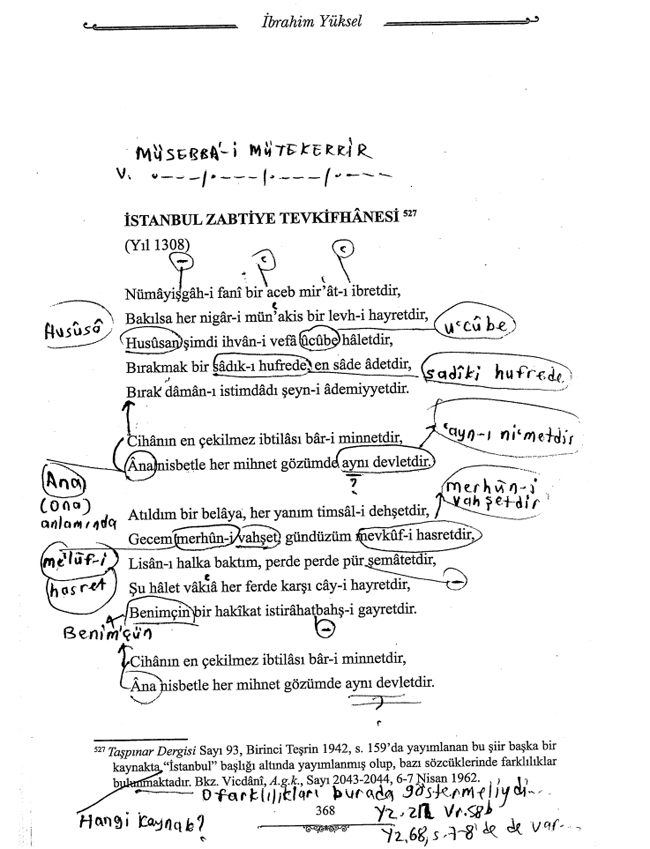 İbrahim Yüksel
MÜSEBBA'-İ MÜTEKERRİR
V. .---/.---/.---/.---
İSTANBUL ZABTİYE TEVKİFHÂNESİ 527
(Yıl 1308)
Nümâyişgâh-i fanî bir aceb mir'ât-ı ibretdir,
Bakılsa her nigâr-i mün'akis bir levh-i hayretdir,
Husûsâ
Husûsan şimdi ihvân-i vefâ ücûbe hâletdir,
u'cûbe
Bırakmak bir sâdık-ı hufrede en sâde âdetdir,
sadîki hufrede
Bırak dâmân-ı istimdâdı şeyn-i âdemiyyetdir.
Cihânın en çekilmez ibtilâsı bâr-i minnetdir,
'ayn-ı ni'metdir
Âna nisbetle her mihnet gözümde aynı devletdir.
?
Ana
(ona)
anlamında
merhûn-i
vahşetdir
Atıldım bir belâya, her yanım timsâl-i dehşetdir,
Gecem merhûn-i vahşet gündüzüm mevkûf-i hasretdir,
me'lûf-i
hasret
Lisân-ı halka baktım, perde perde pür semâtetdir,
Şu hâlet vâkiâ her ferde karşı cây-i hayretdir,
Benimçin bir hakîkat istirâhatbahş-i gayretdir.
Benim'çün
Cihânın en çekilmez ibtilâsı bâr-i minnetdir,
Âna nisbetle her mihnet gözümde aynı devletdir.
?
527 Taşpınar Dergisi Sayı 93, Birinci Teşrin 1942, s. 159'da yayımlanan bu şiir başka bir
kaynakta "İstanbul" başlığı altında yayımlanmış olup, bazı sözcüklerinde farklılıklar
bulunmaktadır. Bkz. Vicdânî, A.g.k., Sayı 2043-2044, 6-7 Nisan 1962.
O farklılıkları burada göstermeliydi...
Hangi kaynak?
368
Yz. 2 Vr. 58b
Yz, 68, s. 7-8'de de var...